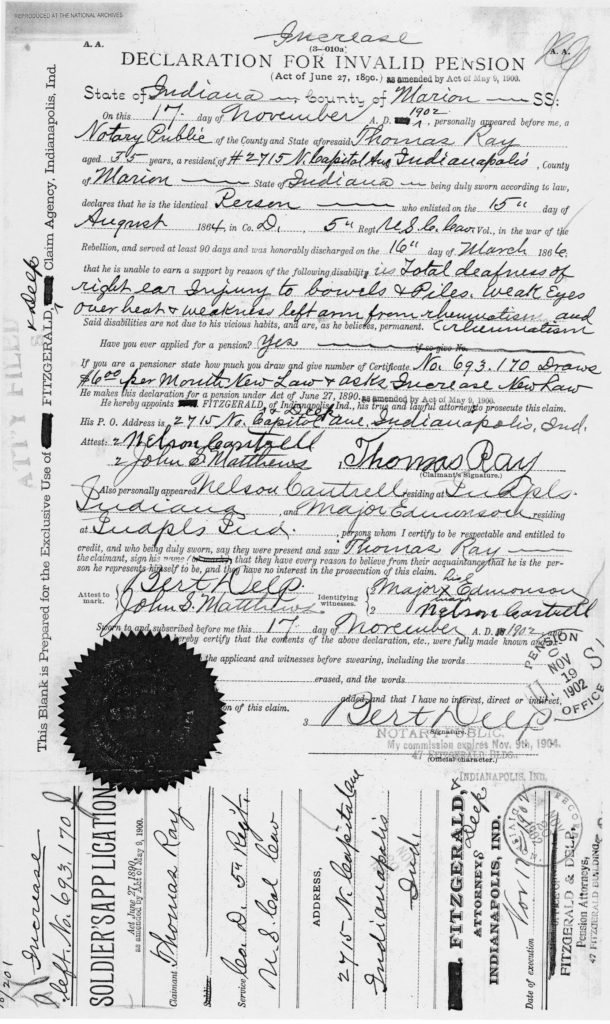 REPRODUCED AT THE NATIONAL ARCHIVES
Increase
A. A. (3—010a) A. A.
DECLARATION FOR INVALID PENSION
(Act of June 27, 1890.) as amended by Act of May 9, 1900.
State of Indiana, County of Marion SS:
On this 17 day of November A. D. 1902, personally appeared before me, a
Notary Public of the County and State aforesaid Thomas Ray
aged 55 years, a resident of #2715 N. Capital Ave Indianapolis, County
of Marion State of Indiana being duly sworn according to law,
declares that he is the identical Person who enlisted on the 15" day of
August 1864, in Co. D. 5" Regt. U S C. Cav Vol., in the war of the
Rebellion, and served at least 90 days and was honorably discharged on the 16" day of March 1866,
that he is unable to earn a support by reason of the following disability, is Total deafness of
right ear Injury to bowels & Piles. Weak Eyes
over heat & weakness left arm from rheumatism and
Said disabilities are not due to his vicious habits, and are, as he believes, permanent. (rheumatism
Have you ever applied for a pension? Yes if so give No.
If you are a pensioner state how much you draw and give number of Certificate No. 693.170 Draws
$6.00 per Month New Law & asks Increase New Law
He makes this declaration for a pension under Act of June 27, 1890. as amended by Act of May 9, 1900.
He hereby appoints FITZGERALD, & Deelp of Indianapolis, Ind., his true and lawful attorneys to prosecute this claim.
His P. O. Address is 2715 No. Capitol ave. Indianapolis, Ind.
Attest: 1 Nelson Cantrell
2 John S. Matthews Thomas Ray
(Claimant's Signature.)
Also personally appeared Nelson Cantrell residing at Indpls.
Indiana, and Major Edmonson residing
at Indpls Ind. persons whom I certify to be respectable and entitled to
credit, and who being duly sworn, say they were present and saw Thomas Ray
the claimant, sign his name that they have every reason to believe from their acquaintance that he is the per-
son he represents himself to be, and they have no interest in the prosecution of this claim.
Attest to mark. Bert Deelp Identifying witnesses. 1 Major his X mark Edmonson
John S. Matthews 2 Nelson Cantrell
Sworn to and subscribed before me this 17 day of November A. D. 1902 and
hereby certify that the contents of the above declaration, etc., were fully made known and
the applicant and witnesses before swearing, including the words
erased, and the words
added; and that I have no interest, direct or indirect,
on of this claim.
3 Bert Deelp
(Signature.)
NOTARY PUBLIC.
My commission expires Nov. 9th, 1904.
47 FITZGERALD BLDG.
(Official character.)
INDIANAPOLIS, IND.
PENSION OFFICE
NOV 19 1902
This Blank is Prepared for the Exclusive Use of FITZGERALD, & Deelp Claim Agency, Indianapolis, Ind.
ATTY FILED
Increase
Cert. No. 693.170
SOLDIER'S APPLICATION
Act June 27, 1890,
as amended by Act of May 9, 1900.
Claimant Thomas Ray
Service Co. D. 5" Regt.
U S Col Cav
ADDRESS,
2715 N. Capital ave
Indianapolis
Ind.
FITZGERALD, & Deelp
ATTORNEYS
INDIANAPOLIS, IND.
Nov 17 1902
Date of execution
FITZGERALD & DEELP,
Pension Attorneys,
47 FITZGERALD BUILDING